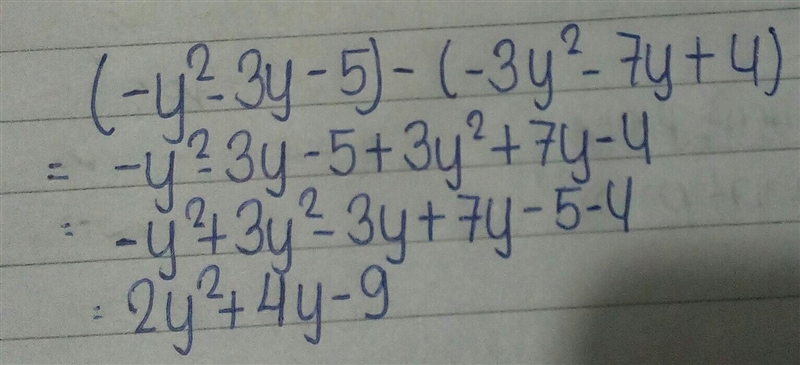 (-y²-3y-5)-(-3y²-7y+4)
= -y²-3y-5+3y²+7y-4
= -y²+3y²-3y+7y-5-4
= 2y²+4y-9